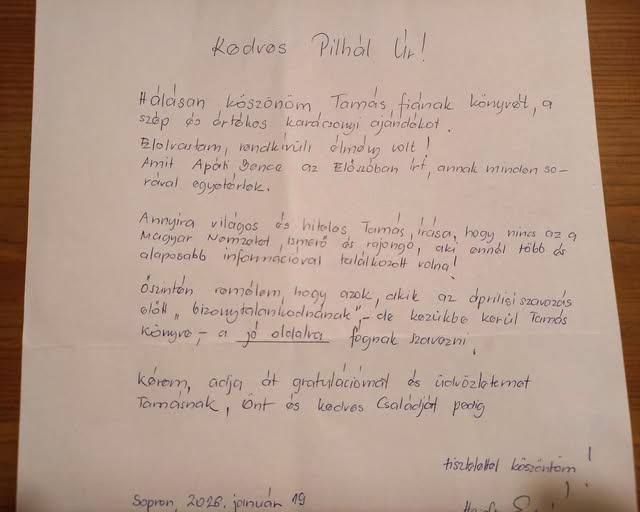 Kedves Pilhál Úr!
Hálásan köszönöm Tamás, fiának könyvét, a
szép és értékes karácsonyi ajándékot.
Elolvastam, rendkívüli élmény volt!
Amit Apáti Bence az Előszóban írt, annak minden so-
rával egyetértek.
Annyira világos és hiteles Tamás, írása, hogy nincs az a
Magyar Nemzetet, ismerő és rajongó, aki ennél több és
alaposabb információval találkozott volna!
Őszintén remélem, hogy azok, akik az áprilisi szavazás
előtt „bizonytalankodnának",- de kezükbe kerül Tamás
könyve,- a jó oldalra fognak szavazni.
Kérem, adja át gratulációmat és üdvözletemet
Tamásnak, Önt és kedves Családját pedig
tisztelettel köszöntöm!
Sopron, 2026. január 19